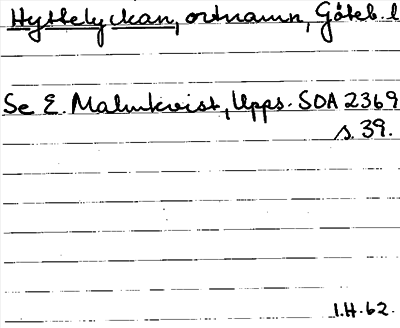 Hyttelyckan, ortnamn, Göteb. l
Se E. Malmkvist, Upps. SOA 2369
s. 39.
I.H. 62.